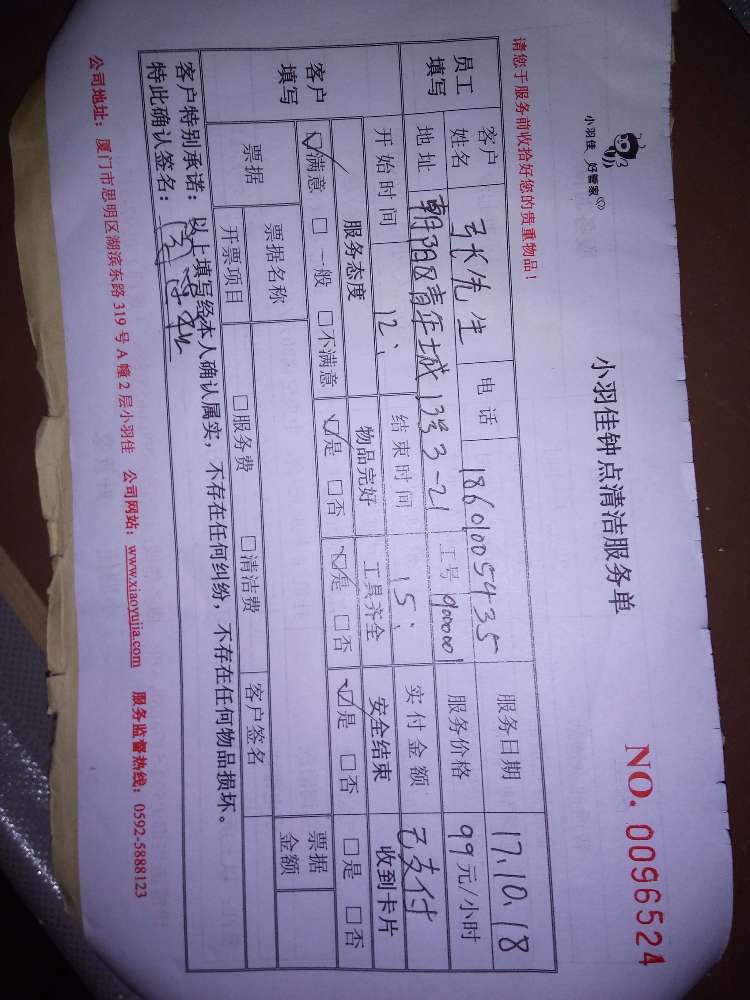 小羽佳 好管家
小羽佳钟点清洁服务单
NO. 0096524
请您于服务前收拾好您的贵重物品！
员工填写 客户姓名 张先生 电话 18601005435 服务日期 17.10.18
地址 朝阳区青年城 13号 3-21 工号 900001 服务价格 99元/小时
开始时间 12、 结束时间 15、 实付金额 已支付
客户填写 服务态度 物品完好 工具齐全 安全结束 收到卡片
☑满意 □一般 □不满意 ☑是 □否 ☑是 □否 ☑是 □否 □是 □否
票据 票据名称 客户签名 票据金额
开票项目 □服务费 □清洁费
客户特别承诺：以上填写经本人确认属实，不存在任何纠纷，不存在任何物品损坏。
特此确认签名：
公司地址：厦门市思明区湖滨东路 319 号 A 幢 2 层小羽佳 公司网站：www.xiaoyujia.com 服务监督热线：0592-5888123